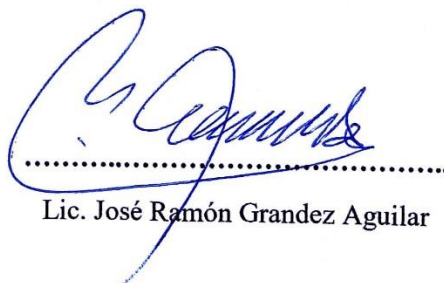 Lic. José Ramón Grandez Aguilar